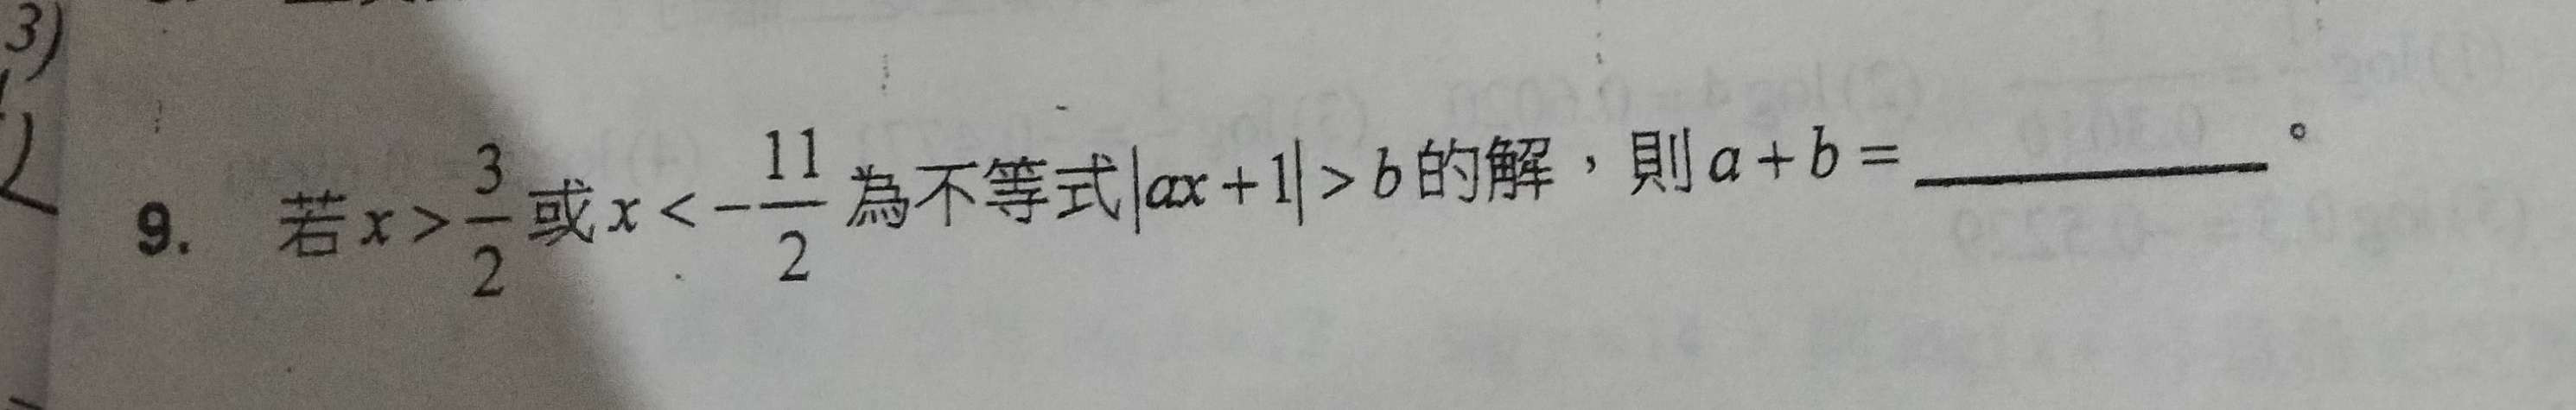 3)
9. 若 x > 3/2 或 x < -11/2 為不等式 |ax+1| > b 的解，則 a+b = ________。